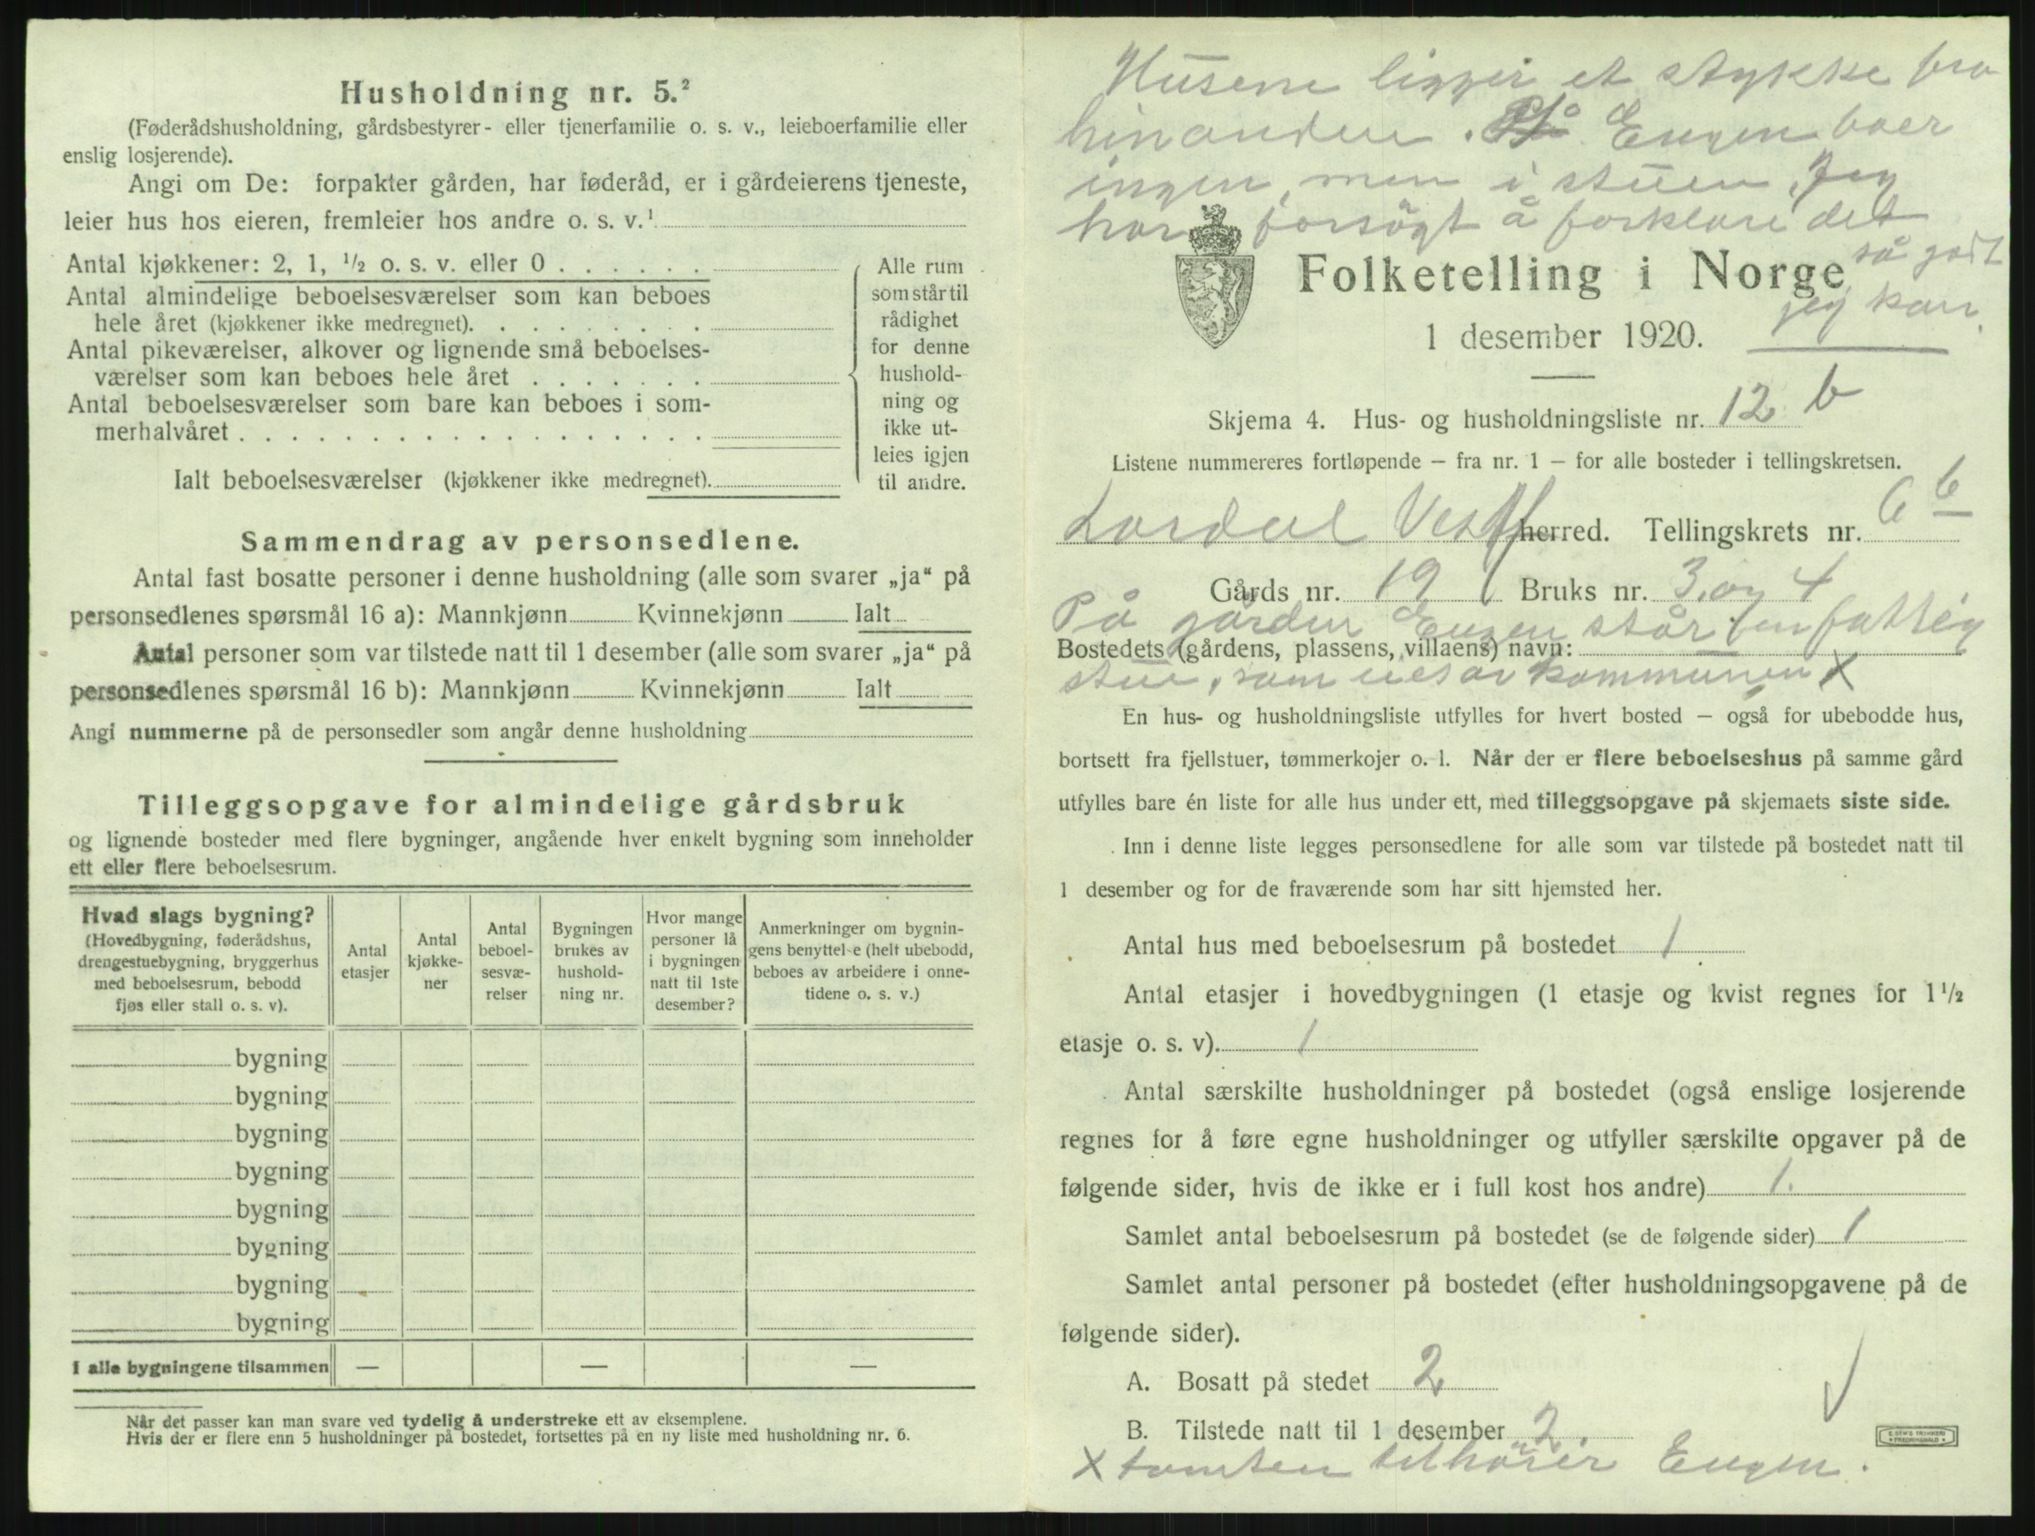 Husholdning nr. 5.²
(Føderådshusholdning, gårdsbestyrer- eller tjenerfamilie o. s. v., leieboerfamilie eller
enslig losjerende).
Angi om De: forpakter gården, har føderåd, er i gårdeierens tjeneste,
leier hus hos eieren, fremleier hos andre o. s. v.¹
Antal kjøkkener: 2, 1, ½ o. s. v. eller 0 . . . . . .
Antal almindelige beboelsesværelser som kan beboes
hele året (kjøkkener ikke medregnet). . . . . . . . .
Antal pikeværelser, alkover og lignende små beboelses-
værelser som kan beboes hele året . . . . . . .
Antal beboelsesværelser som bare kan beboes i som-
merhalvåret . . . . . . . . . . . . . . . . . .
Ialt beboelsesværelser (kjøkkener ikke medregnet).
Alle rum
som står til
rådighet
for denne
hushold-
ning og
ikke ut-
leies igjen
til andre.
Sammendrag av personsedlene.
Antal fast bosatte personer i denne husholdning (alle som svarer „ja“ på
personsedlenes spørsmål 16 a): Mannkjønn Kvinnekjønn Ialt
Antal personer som var tilstede natt til 1 desember (alle som svarer „ja“ på
personsedlenes spørsmål 16 b): Mannkjønn Kvinnekjønn Ialt
Angi nummerne på de personsedler som angår denne husholdning
Tilleggsopgave for almindelige gårdsbruk
og lignende bosteder med flere bygninger, angående hver enkelt bygning som inneholder
ett eller flere beboelsesrum.
Hvad slags bygning?
(Hovedbygning, føderådshus,
drengestuebygning, bryggerhus
med beboelsesrum, bebodd
fjøs eller stall o. s. v).
Antal
etasjer
Antal
kjøkke-
ner
Antal
beboel-
sesvæ-
relser
Bygningen
brukes av
hushold-
ning nr.
Hvor mange
personer lå
i bygningen
natt til 1ste
desember?
Anmerkninger om bygnin-
gens benyttelse (helt ubebodd,
beboes av arbeidere i onne-
tidene o. s. v.)
bygning
bygning
bygning
bygning
bygning
bygning
bygning
bygning
I alle bygningene tilsammen — — —
Når det passer kan man svare ved tydelig å understreke ett av eksemplene.
Hvis der er flere enn 5 husholdninger på bostedet, fortsettes på en ny liste med husholdning nr. 6.
Husene ligger et stykke fra
hinanden. På Engen boer
ingen, men i stuen. Jeg
har forsøgt å forklare det
så godt
jeg kan.
Folketelling i Norge
1 desember 1920.
Skjema 4. Hus- og husholdningsliste nr. 12 b
Listene nummereres fortløpende – fra nr. 1 – for alle bosteder i tellingskretsen.
Lardal Vestf herred. Tellingskrets nr. 6 b
Gårds nr. 19 Bruks nr. 3 og 4
På gården Engen står en fattig
Bostedets (gårdens, plassens, villaens) navn:
stue, som eies av kommunen X
En hus- og husholdningsliste utfylles for hvert bosted – også for ubebodde hus,
bortsett fra fjellstuer, tømmerkojer o. l. Når der er flere beboelseshus på samme gård
utfylles bare én liste for alle hus under ett, med tilleggsopgave på skjemaets siste side.
Inn i denne liste legges personsedlene for alle som var tilstede på bostedet natt til
1 desember og for de fraværende som har sitt hjemsted her.
Antal hus med beboelsesrum på bostedet 1
Antal etasjer i hovedbygningen (1 etasje og kvist regnes for 1½
etasje o. s. v). 1
Antal særskilte husholdninger på bostedet (også enslige losjerende
regnes for å føre egne husholdninger og utfyller særskilte opgaver på de
følgende sider, hvis de ikke er i full kost hos andre) 1.
Samlet antal beboelsesrum på bostedet (se de følgende sider) 1
Samlet antal personer på bostedet (efter husholdningsopgavene på de
følgende sider).
A. Bosatt på stedet 2
B. Tilstede natt til 1 desember 2.
X tomten tilhører Engen.